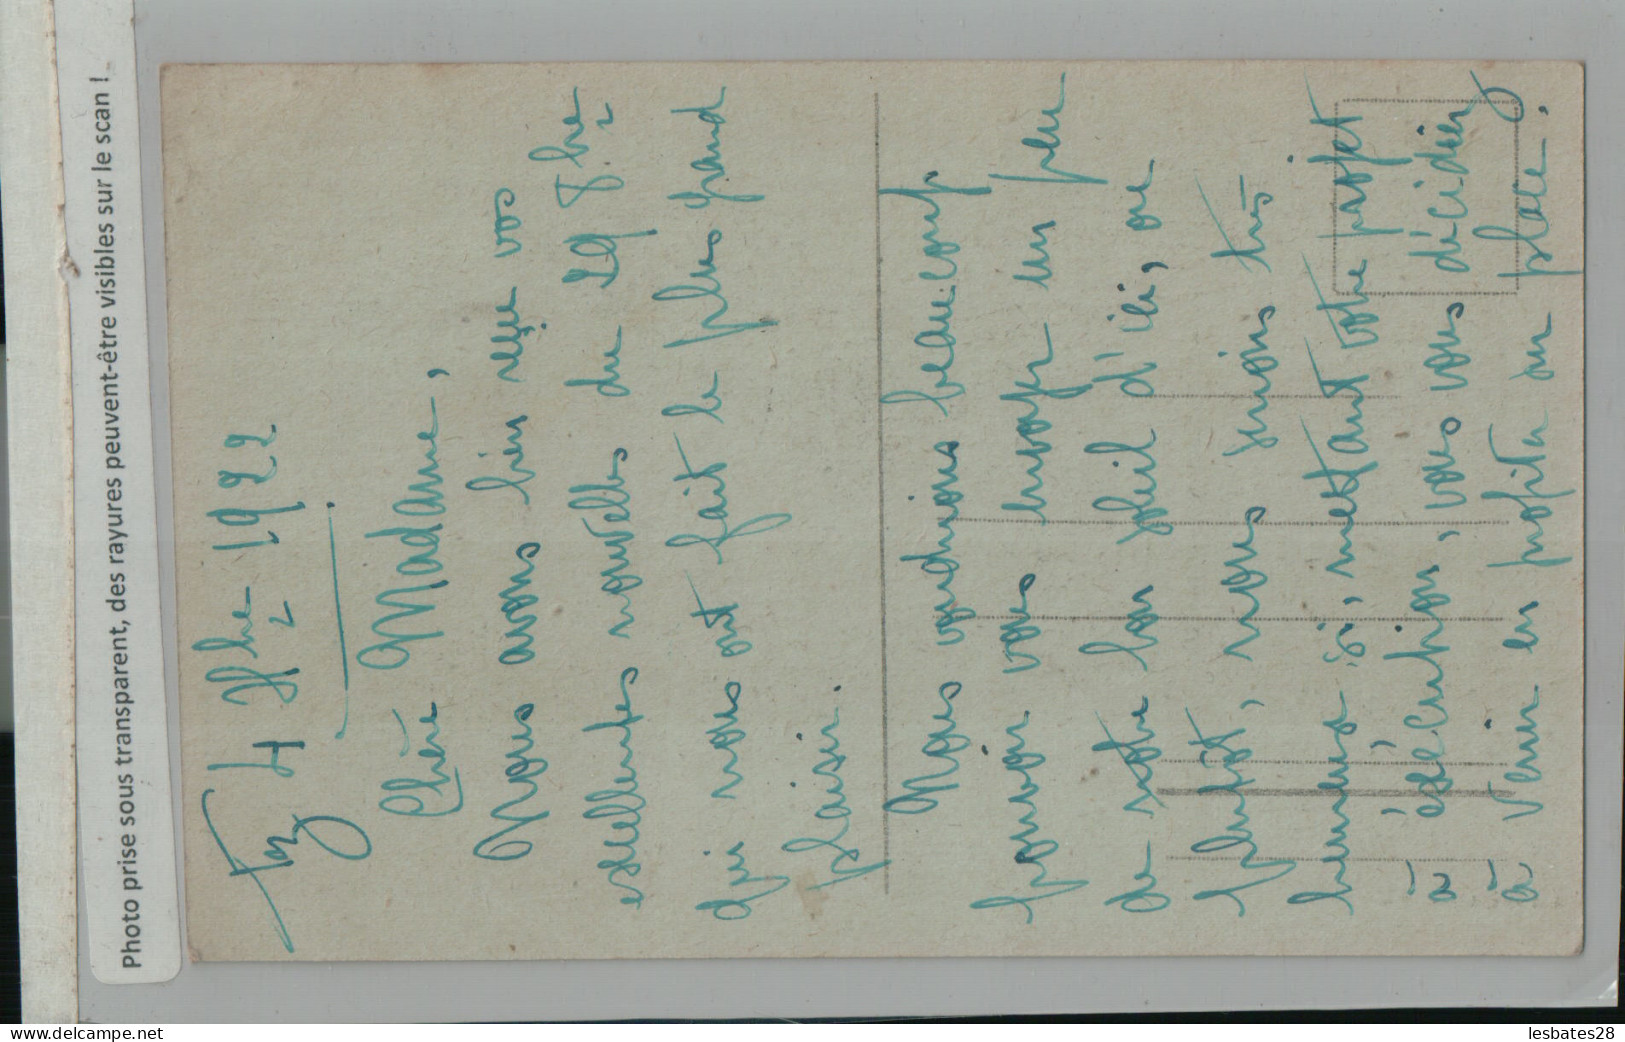 Photo prise sous transparent, des rayures peuvent-être visibles sur le scan !
Fez 4 Xbre 1922
Chère Madame,
Nous avons bien reçu vos
excellentes nouvelles du 29 8bre
qui nous ont fait le plus grand
plaisir.
Nous voudrions beaucoup
pouvoir vous envoyer un peu
de notre bon soleil d'ici, ou
plutôt, nous serions très
heureux si, mettant votre projet
à exécution, vous vous décidiez
à venir en profiter sur place.
www.delcampe.net
lesbates28